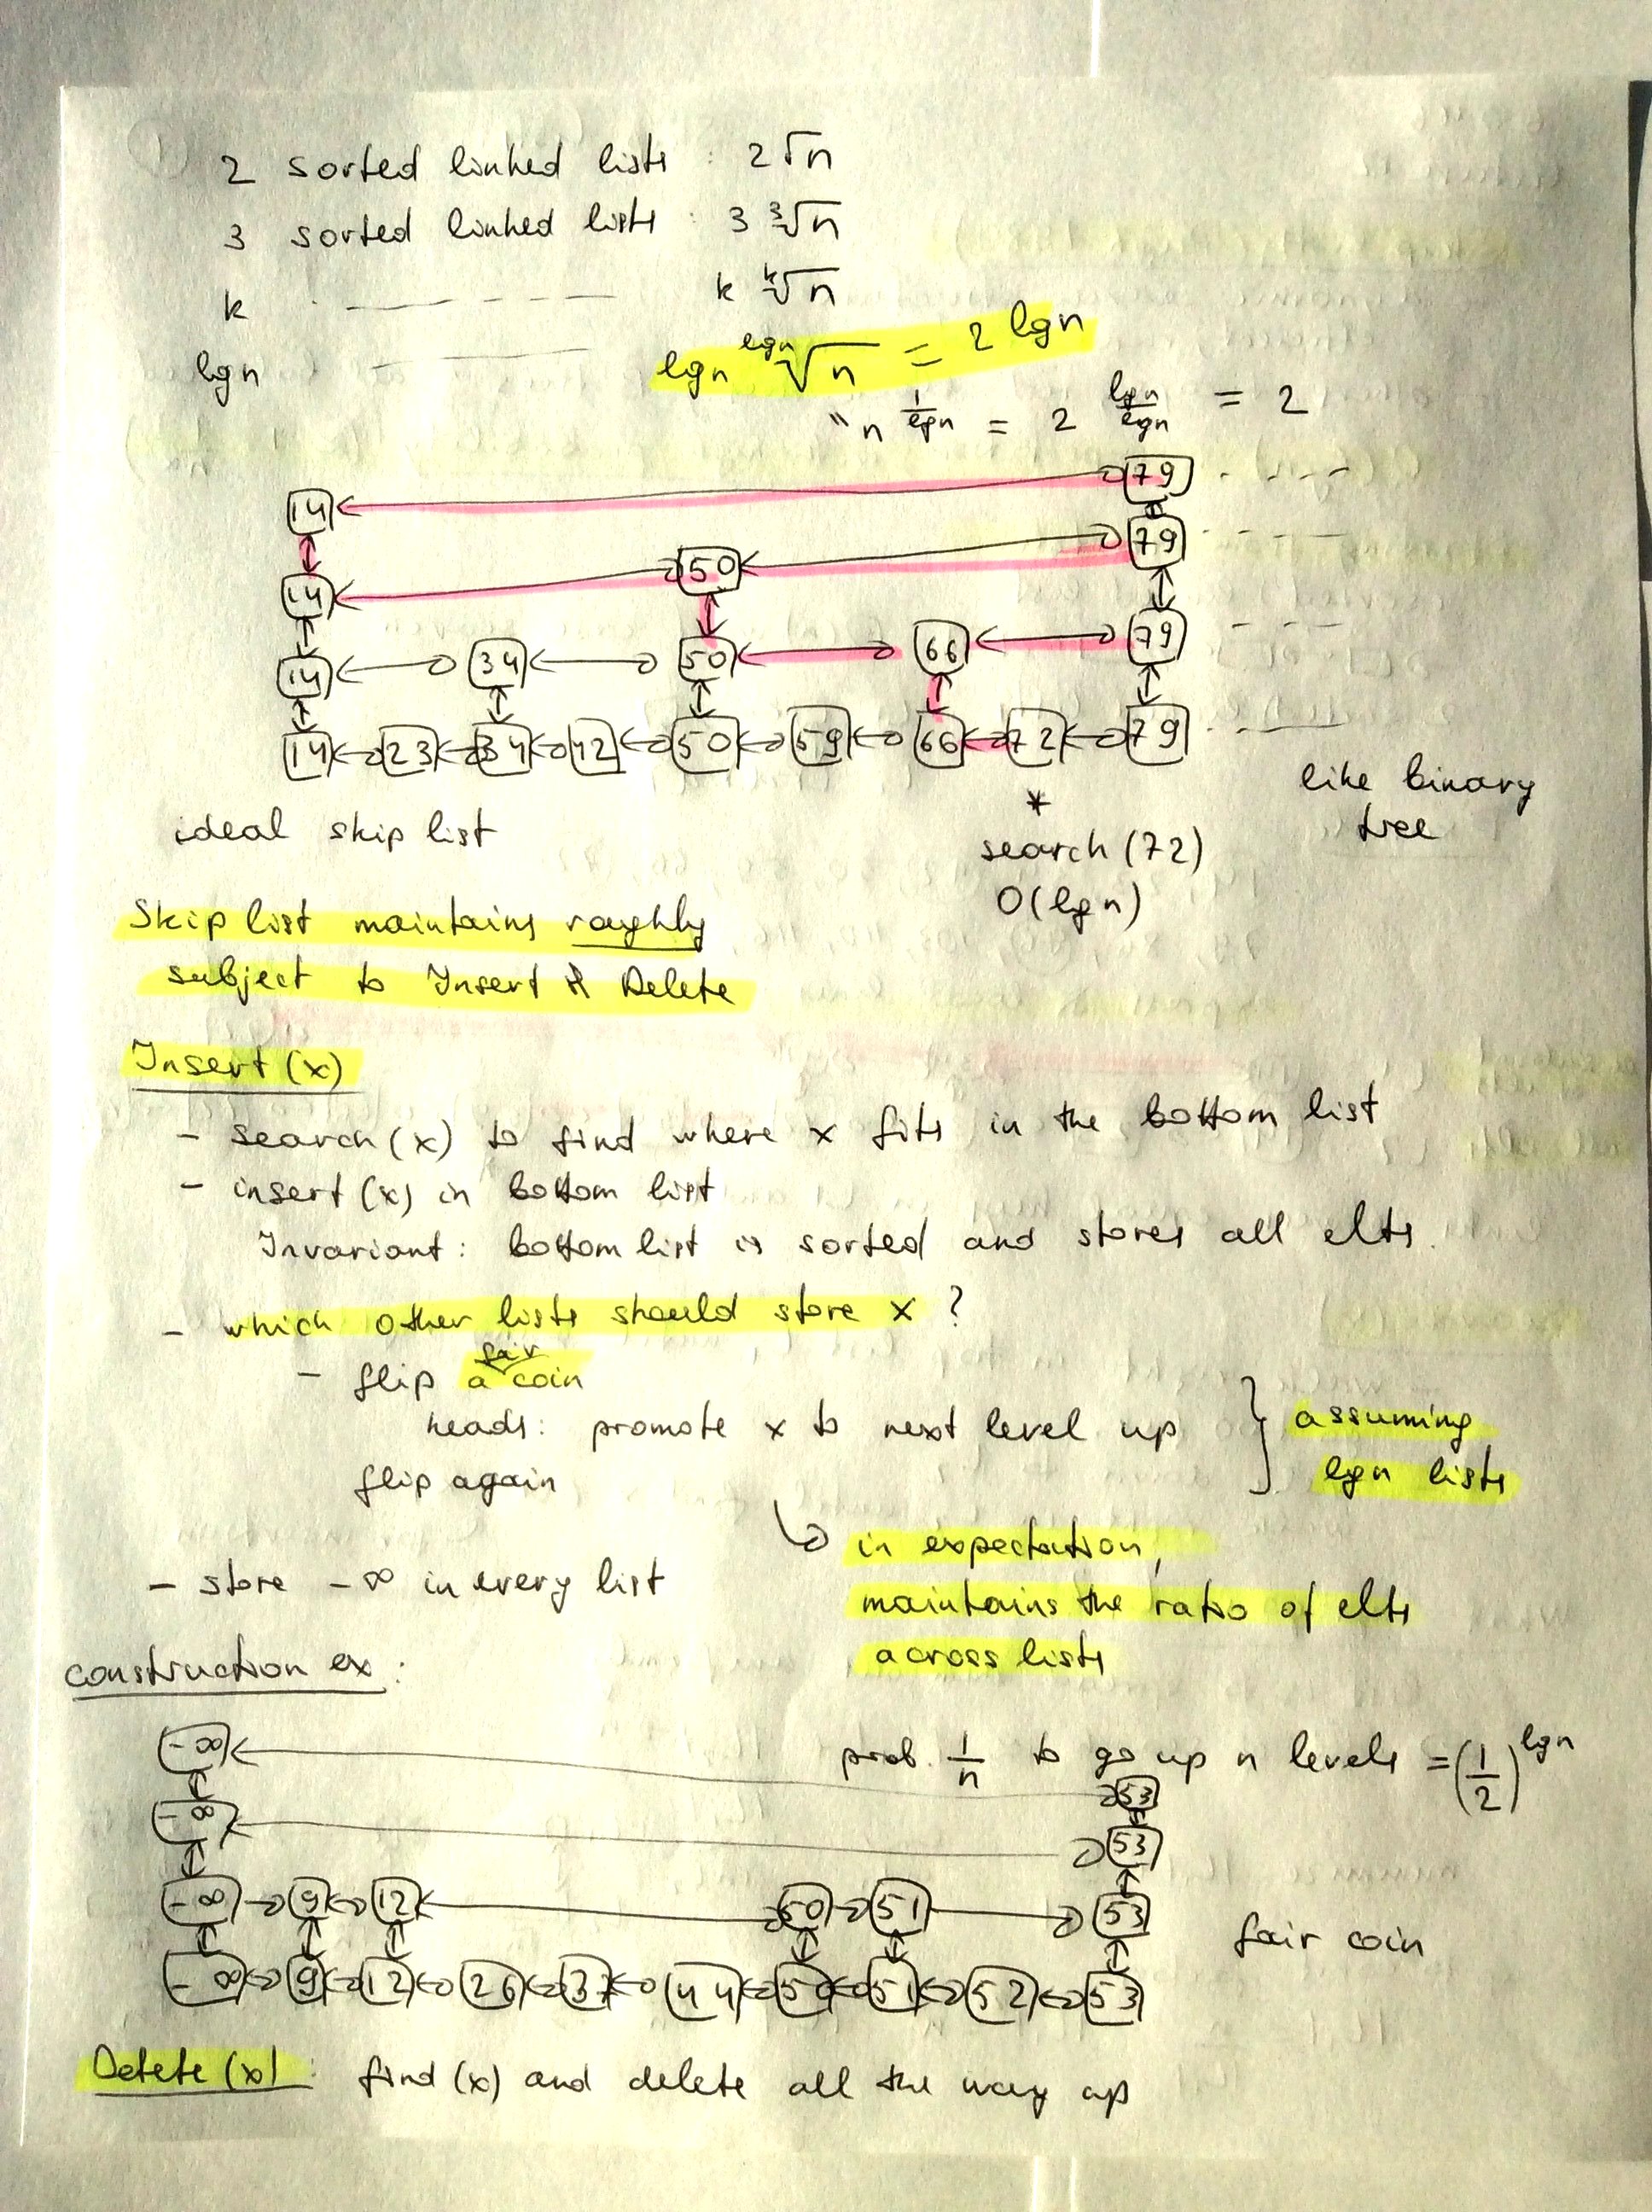 2 sorted linked lists : 2√n
3 sorted linked lists : 3 ∛n
k - - - - - - k ᵏ√n
lgn - - - - - lgn ˡᵍⁿ√n = 2 lgn
" n^(1/lgn) = 2^(lgn/lgn) = 2
14 79 - - - -
14 50 79 - - - -
14 34 50 66 79 - - -
14 23 34 42 50 59 66 72 79 - - -
like binary
tree
ideal skip list
*
search (72)
O(lg n)
Skip list maintains roughly
subject to Insert & Delete
Insert (x)
- search (x) to find where x fits in the bottom list
- insert (x) in bottom list
Invariant: bottom list is sorted and stores all elts.
- which other lists should store x ?
- flip a fair coin
heads: promote x to next level up
flip again
} assuming
lgn lists
↳ in expectation,
maintains the ratio of elts
across lists
- store -∞ in every list
construction ex :
prob. 1/n to go up n levels = (1/2)^lgn
-∞ 53
-∞ 53
-∞ 9 12 50 51 53
fair coin
-∞ 9 12 26 37 44 50 51 52 53
Delete (x) : find (x) and delete all the way up